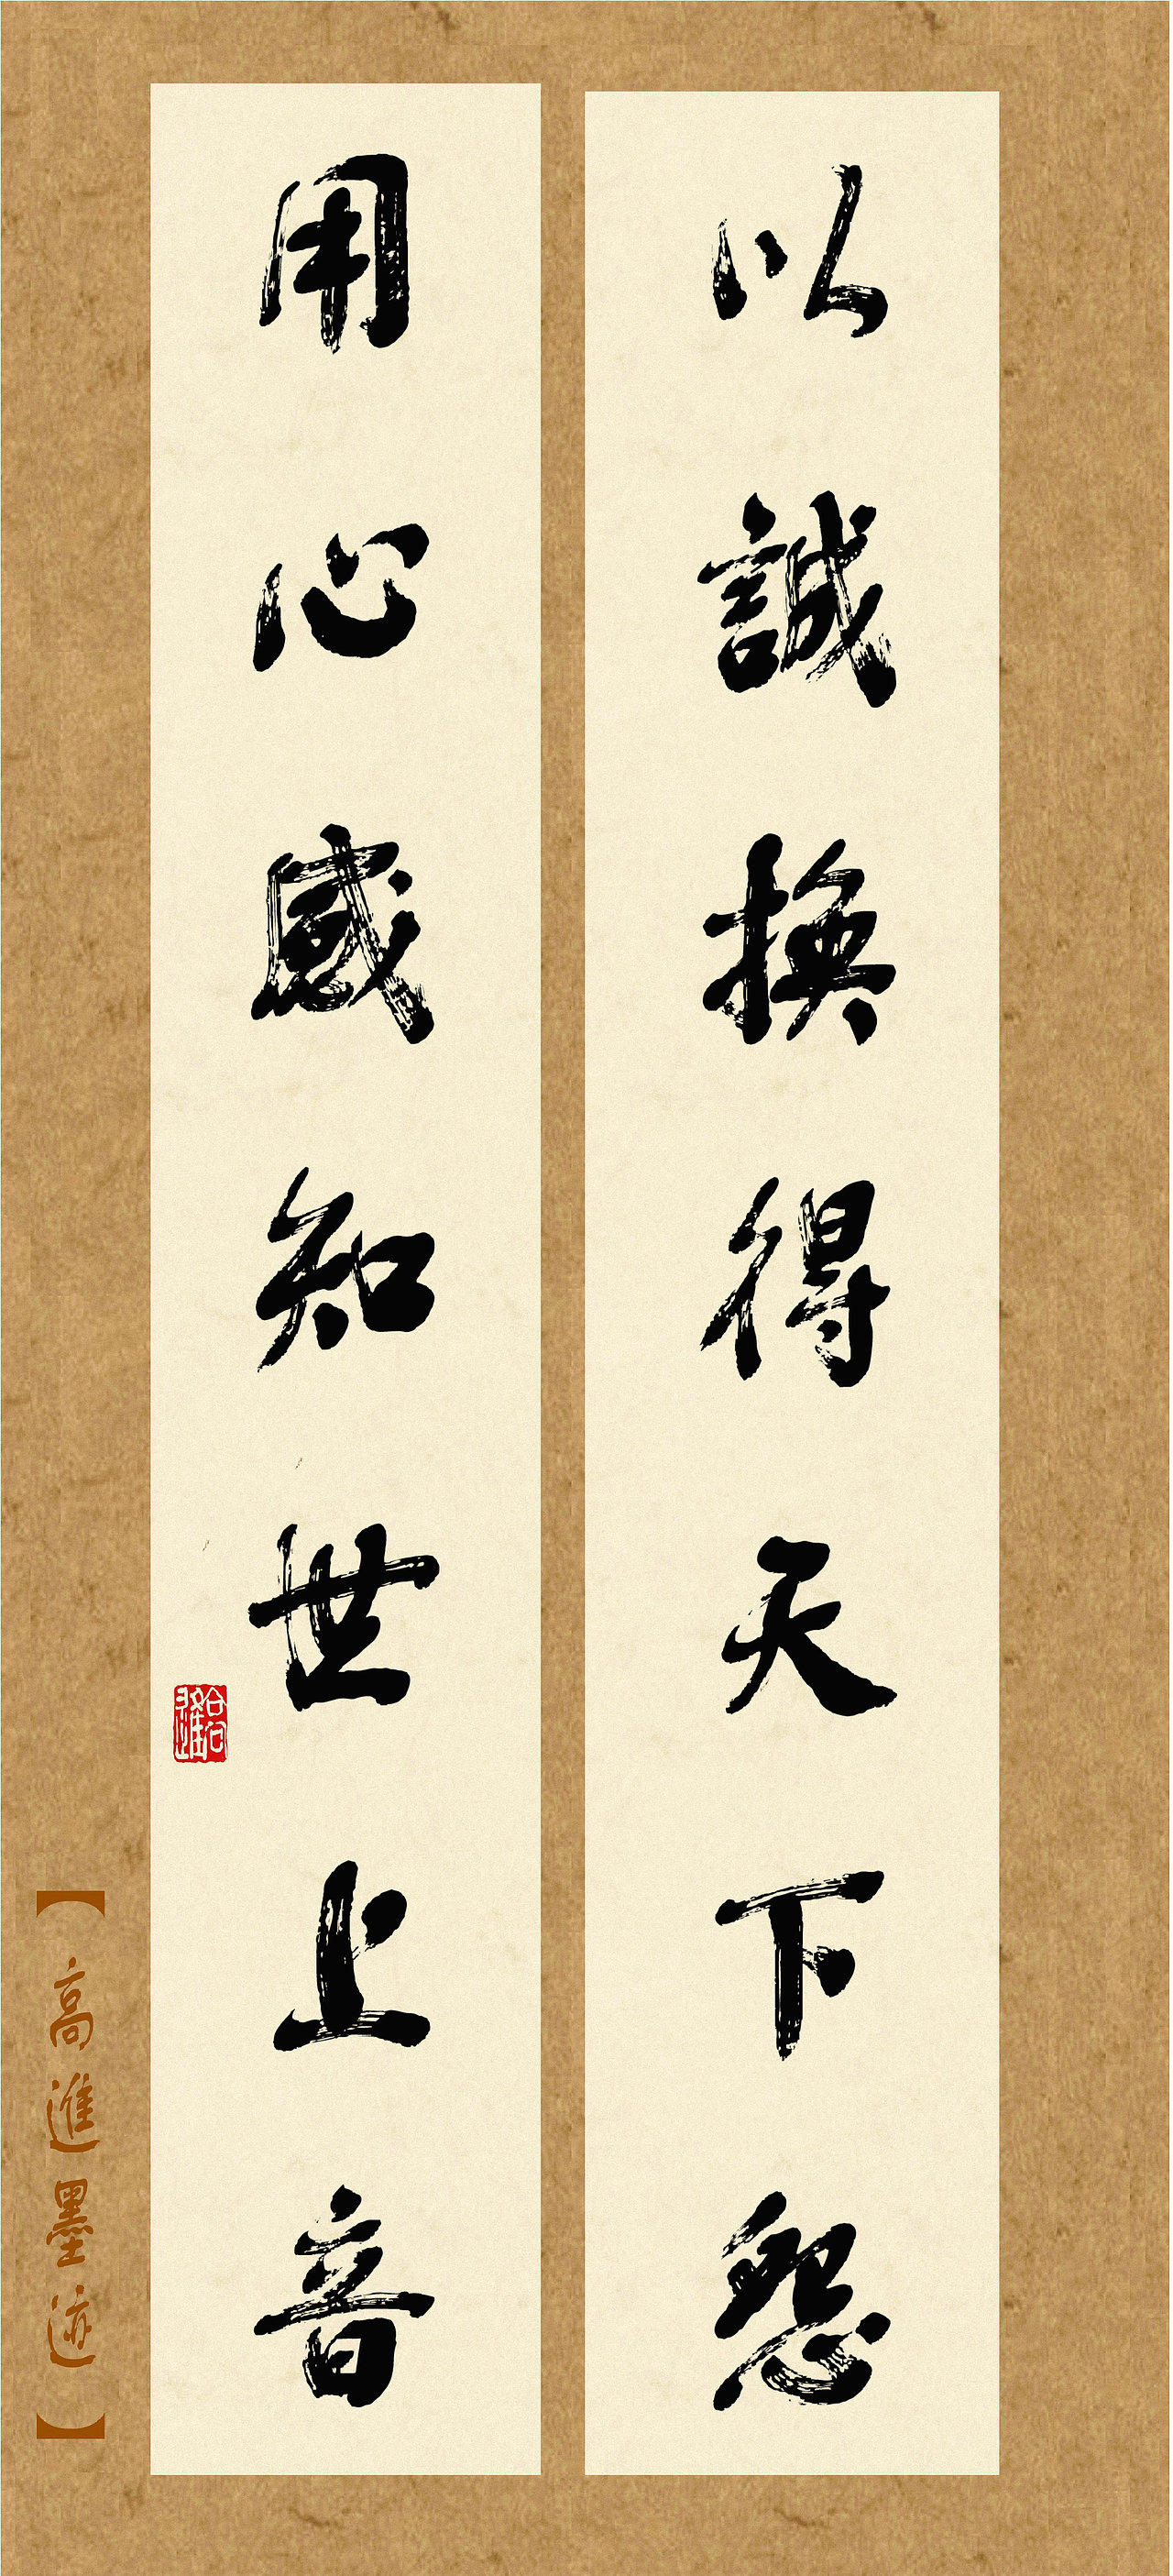 以誠換得天下怨
用心感知世上音
【高進墨迹】